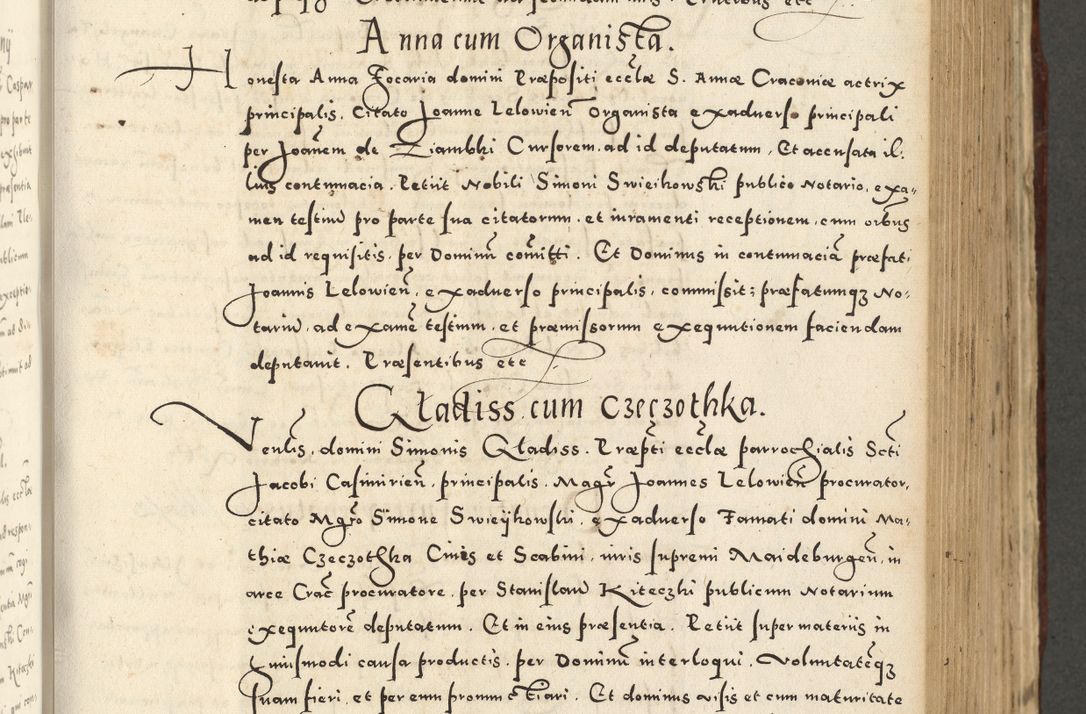 Anna cum Organista.
Honesta Anna Focaria domini Præpositi eccłæ S. Annæ Craconiæ actrix
principalis. Citato Joanne Lelowień Organista exaduerso principali
per Joañem de Ziambki Cursorem. ad id deputatum. Et accusata il:
lius contumacia. Petiit Nobili Simoni Swieikowski publico Notario, exa=
men testiũ pro parte sua citatorum. et iuramenti receptionem, cum oĩbus
ad id requisitis. per Dominũ com̃itti. Et Dominus in contumaciã præfati
Joannis Lelowień, exaduerso principalis, commisit; præfatumqȝ No:
tariũ, ad examẽ testium. et præmissorum exequutionem faciendam
deputauit. Præsentibus etc
Gładiss cum Czeczothka.
Venłis. domini Simonis Gładiss. Præpti eccłæ parrochialis Scti
Jacobi Casimirień. principalis. Magr̃ Joannes Lelowień procurator,
citato Mgr̃o Simone Swieijkowski. exaduerso Famati domini Ma:
thiæ Czeczothka Ciuis et Scabini. iuris supremi Maideburgeń, in
arce Crac̃ procuratore. per Stanislaũ Kiteczki publicum Notarium
exequutorẽ deputatum. Et in eius præsentia. Petiit super materiis in
huiusmodi causa productis. per Dominũ interloqui. Voluntatẽqȝ
suam fieri, et per eum pronunctiari. Et dominus visis et cum maturitate